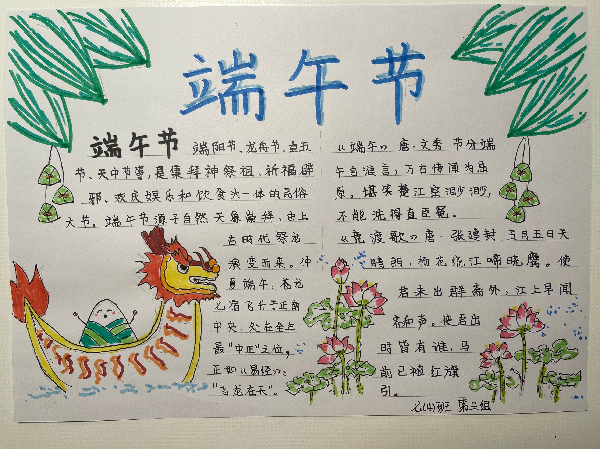 端午节
端午节 端阳节、龙舟节、重五
节、天中节等,是集拜神祭祖、祈福辟
邪、欢庆娱乐和饮食为一体的民俗
大节。端午节源于自然天象崇拜,由上
古时代祭龙
演变而来。仲
夏端午,苍龙
七宿飞升于正南
中央,处在全上
最“中正”之位,
正如《易经》:
“飞龙在天”。
《端午》唐·文秀 节分端
午自谁言,万古传闻为屈
原。堪笑楚江空渺渺,
不能洗得直臣冤。
《竞渡歌》唐·张建封 五月五日天
晴朗,杨花绕江啼晓鹰。使
君未出郡斋外,江上早闻
齐和声。使君出
时皆有准,马
前已被红旗
引。
七(4)班 第三组